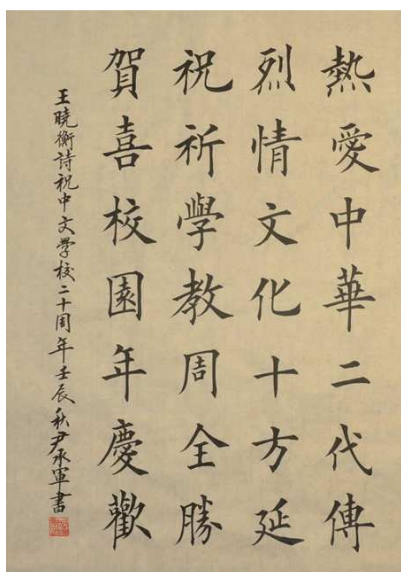 熱愛中華二代傳
烈情文化十方延
祝祈學教周全勝
賀喜校園年慶歡
王曉衡詩祝中文學校二十周年壬辰秋尹承軍書